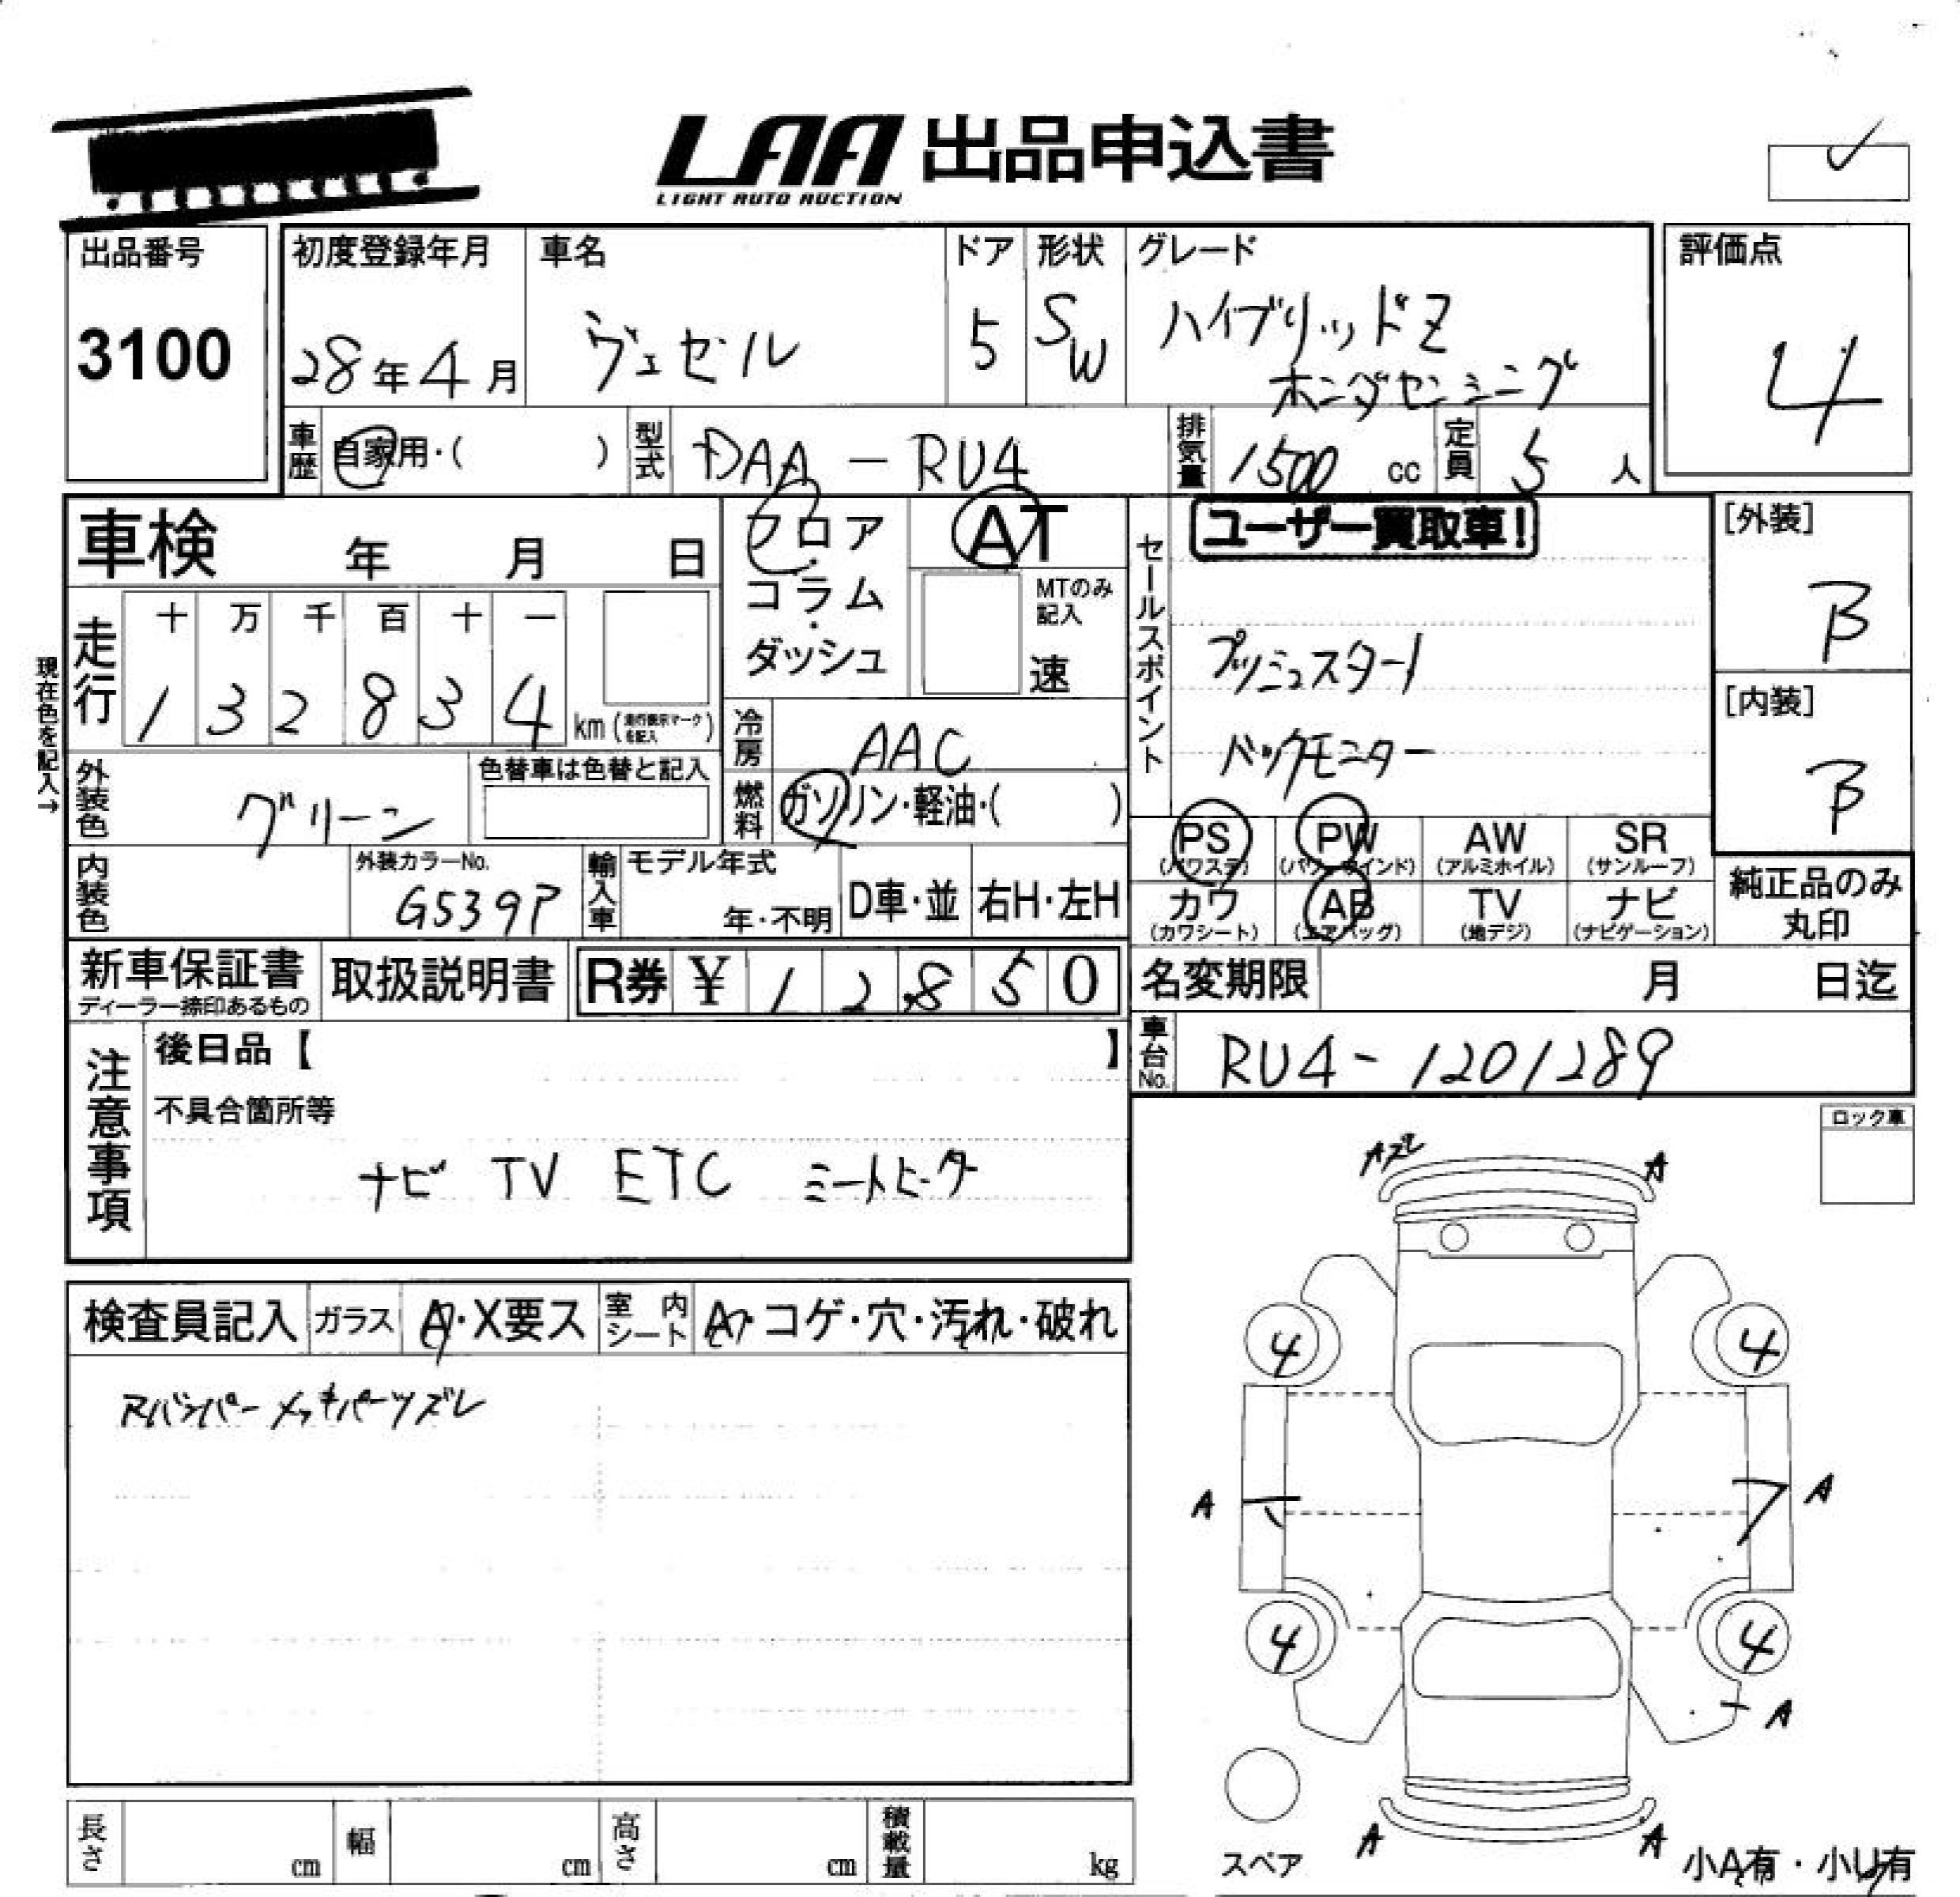 LAA 出品申込書
LIGHT AUTO AUCTION
出品番号
3100
初度登録年月
28年4月
車名
ヴェゼル
ドア
5
形状
SW
グレード
ハイブリッドZ
ホンダセンシング
評価点
4
車歴
自家用・( )
型式
DAA-RU4
排気量
1500 cc
定員
5 人
車検 年 月 日
フロア・コラム・ダッシュ
AT
MTのみ記入
速
セールスポイント
ユーザー買取車!
プッシュスタート
バックモニター
[外装]
B
[内装]
B
現在色を記入→
走行
十 万 千 百 十 一
1 3 2 8 3 4 km (走行表示マークを記入)
冷房
AAC
外装色
グリーン
色替車は色替と記入
燃料
ガソリン・軽油・( )
PS (パワステ)
PW (パワーウインド)
AW (アルミホイル)
SR (サンルーフ)
カワ (カワシート)
AB (エアバッグ)
TV (地デジ)
ナビ (ナビゲーション)
純正品のみ丸印
内装色
外装カラーNo.
G539P
輸入車
モデル年式
年・不明
D車・並
右H・左H
新車保証書
ディーラー捺印あるもの
取扱説明書
R券 ¥ 1 2 8 5 0
名変期限 月 日迄
車台No.
RU4-1201289
注意事項
後日品【 】
不具合箇所等
ナビ TV ETC シートヒーター
ロック車
検査員記入
ガラス
A・X要ス
室内シート
A・コゲ・穴・汚れ・破れ
Rバンパーメッキパーツズレ
Aズレ
A
4
4
A
A
4
4
A
A
A
スペア
小A有・小U有
長さ cm
幅 cm
高さ cm
積載量 kg